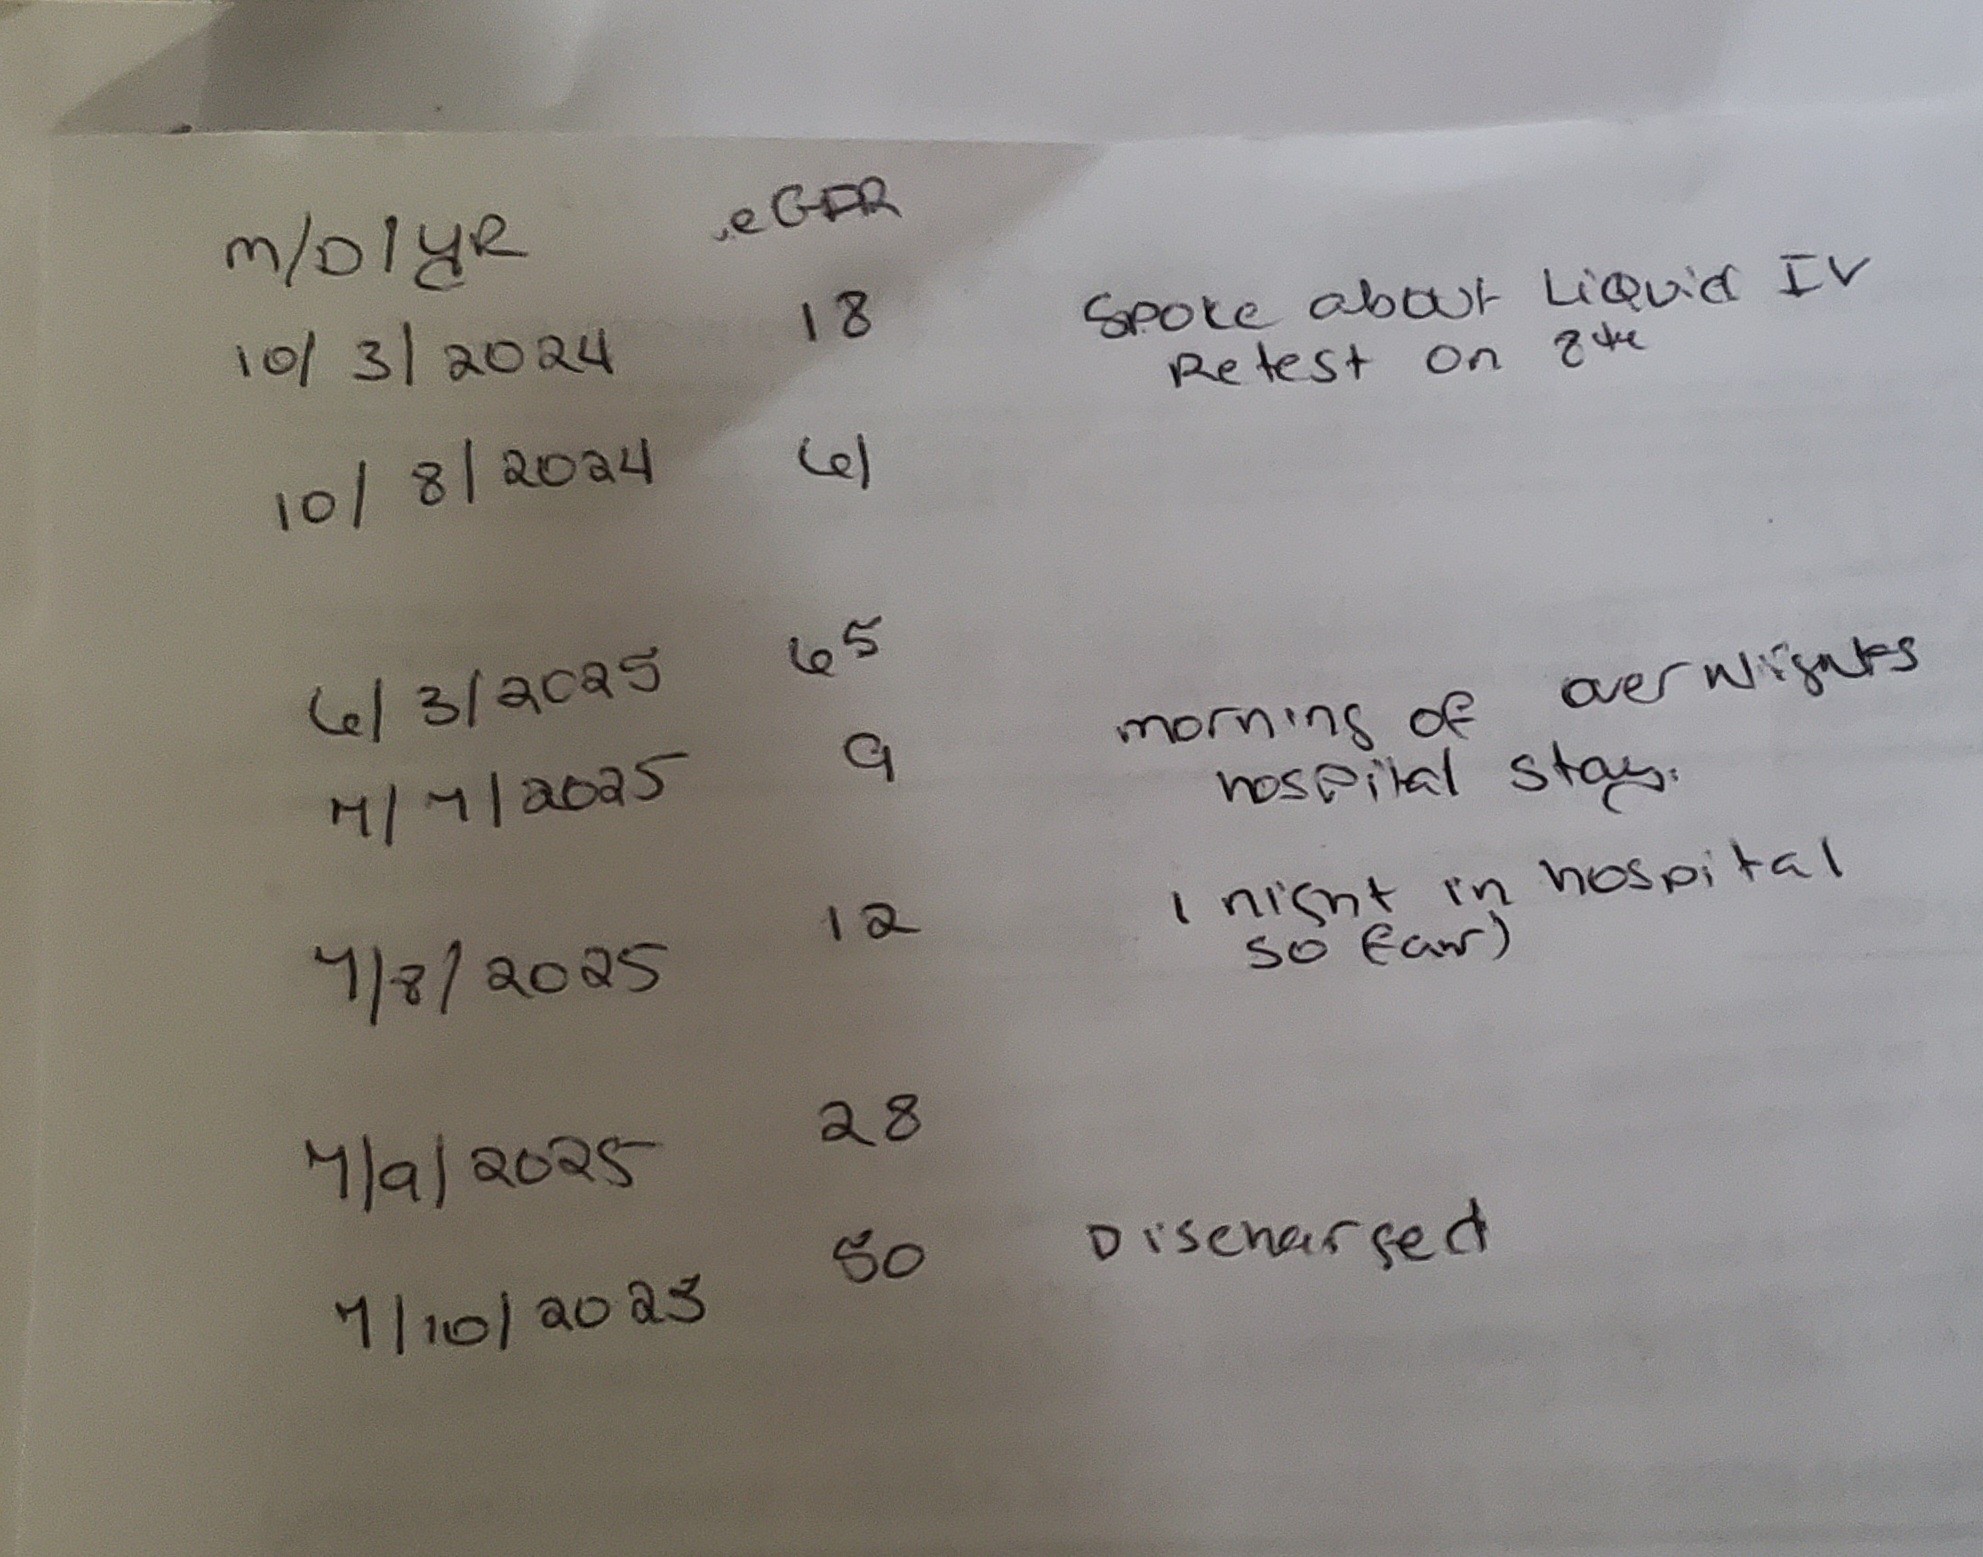 M/D/YR eGFR
10/3/2024 18 Spoke about Liquid IV
Retest on 8th
10/8/2024 61
6/3/2025 65
7/7/2025 9 morning of over Nights
hospital stay.
7/8/2025 12 1 night in hospital
so far)
7/9/2025 28
7/10/2025 50 Discharged